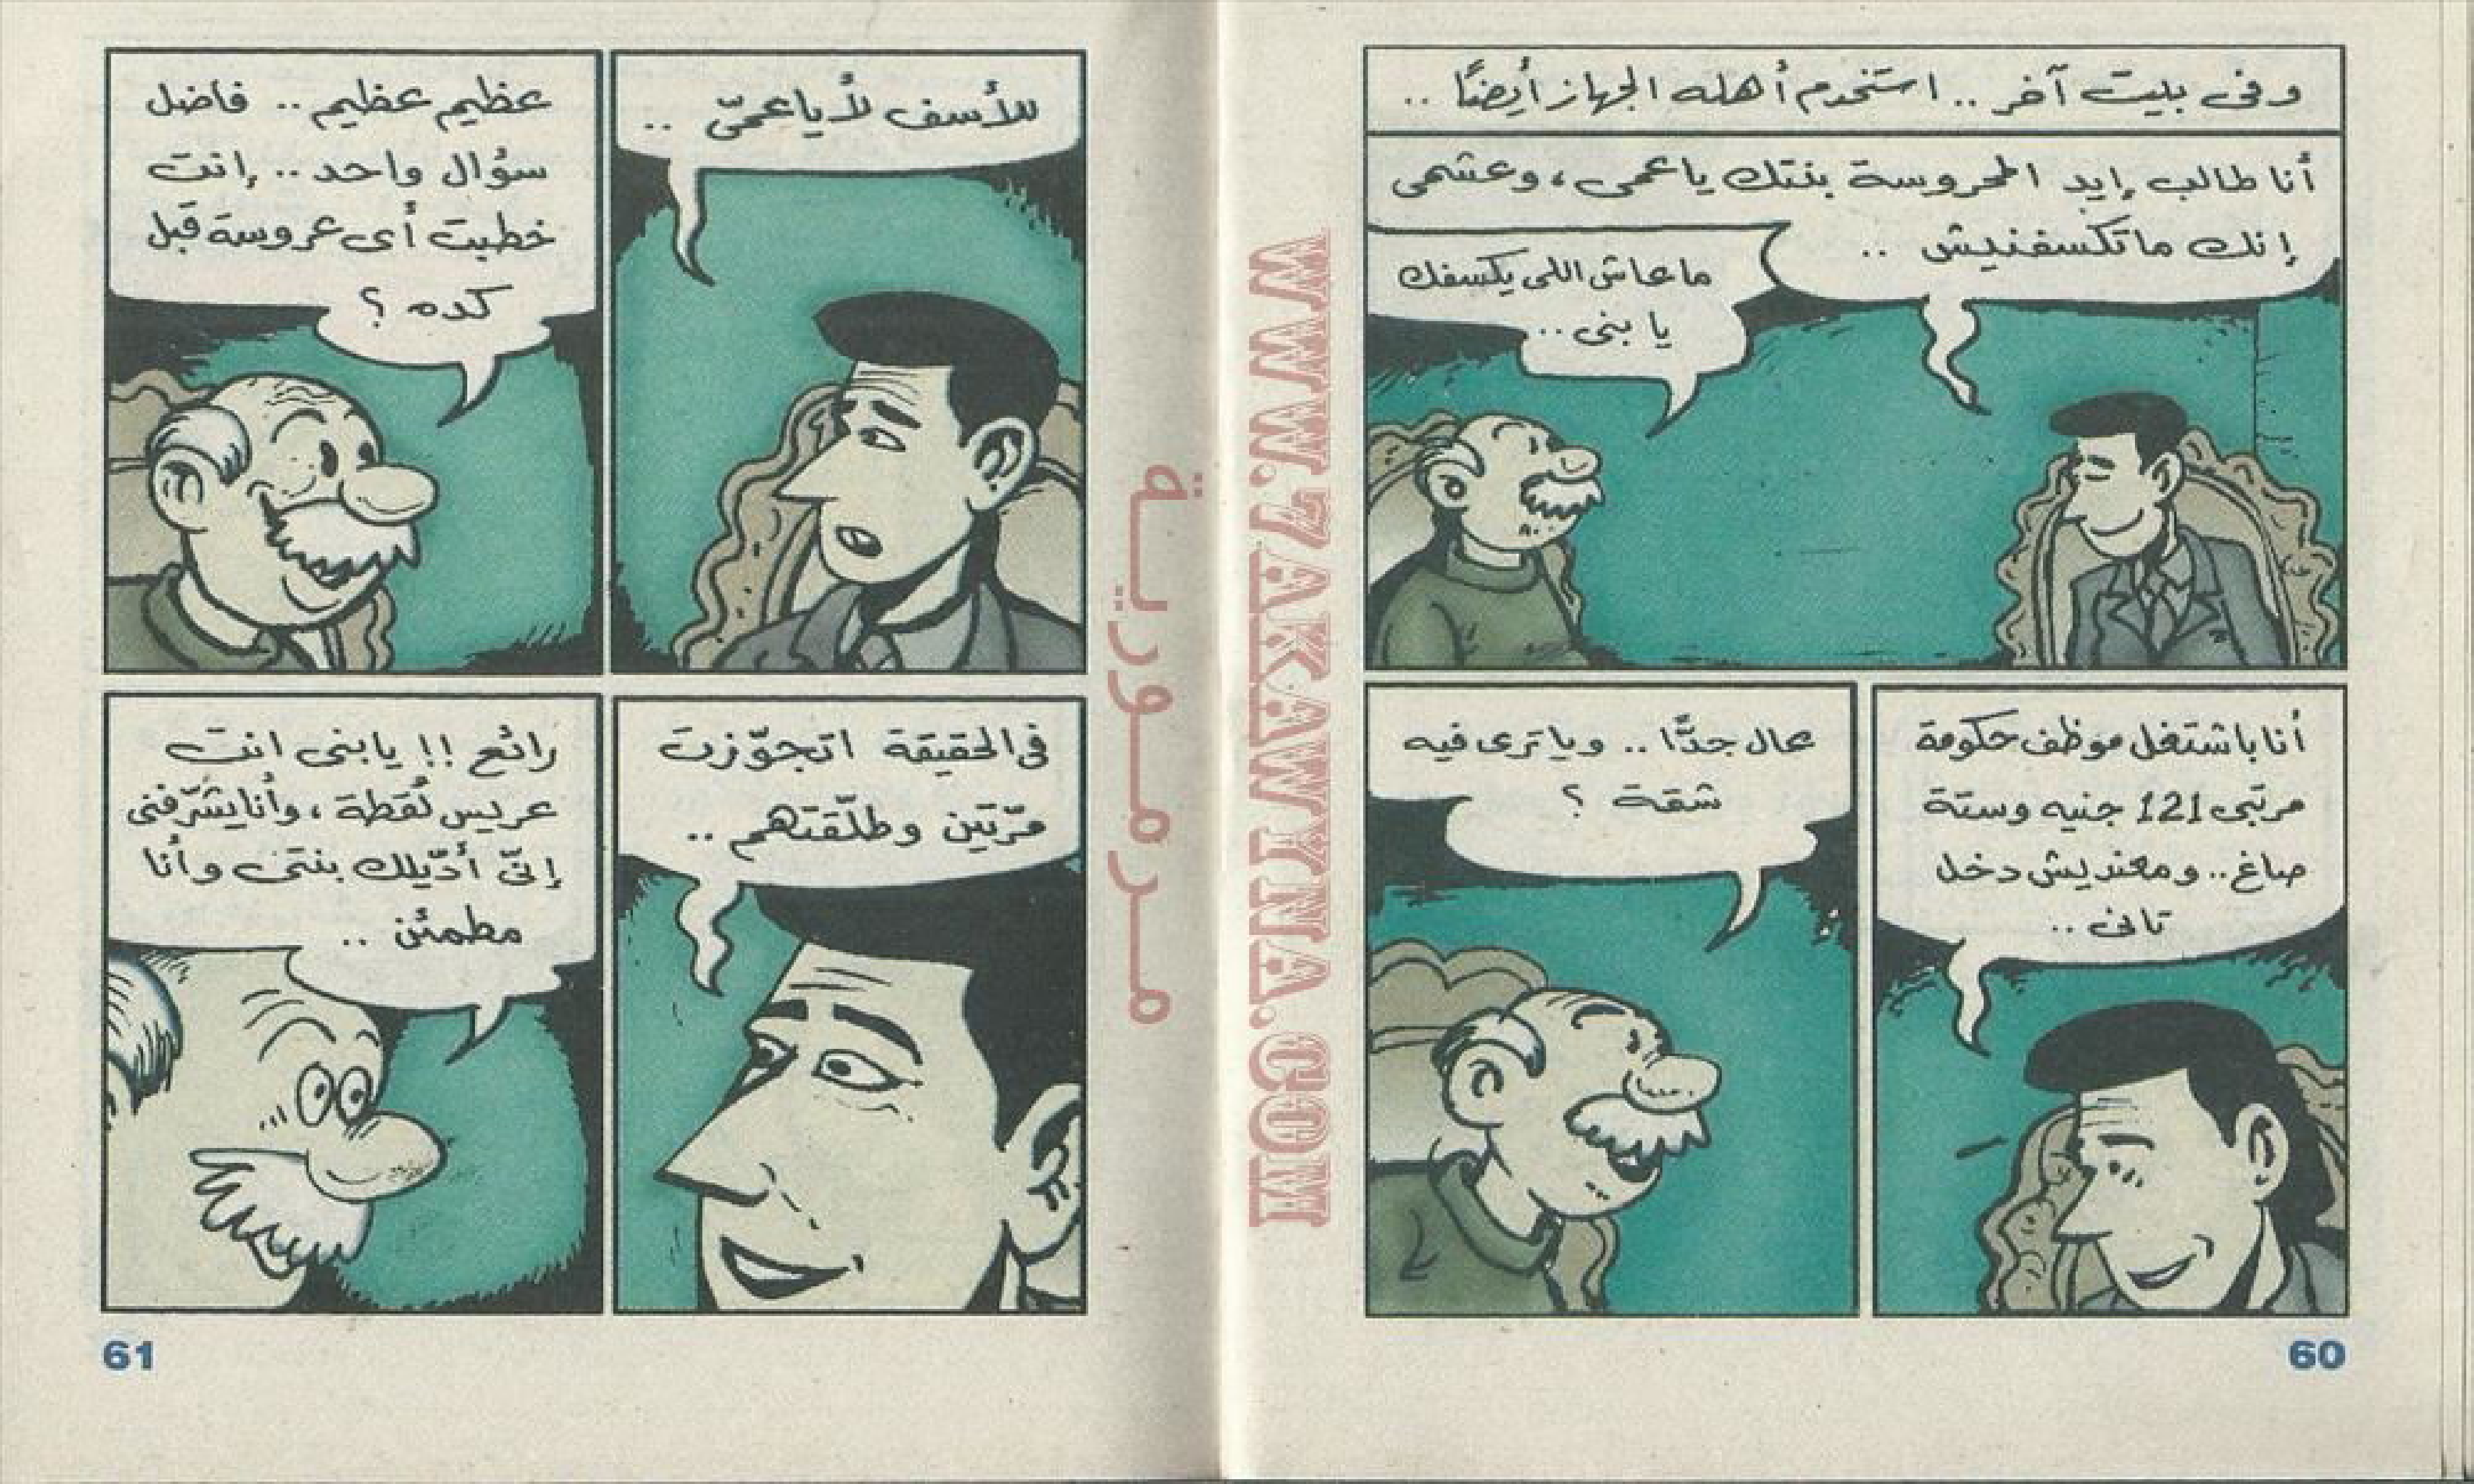 وفى بيت آخر .. استخدم أهله الجهاز أيضًا ..
أنا طالب إيد المحروسة بنتك ياعمى ، وعشمى
إنك ماتكسفنيش ..
ماعاش اللى يكسفك
يابنى ..
أنا باشتغل موظف حكومة
مرتبى 121 جنيه وستة
صاغ .. ومعنديش دخل
تانى ..
عال جدًّا .. وياترى فيه
شقة ؟
60
للأسف لأ ياعمىّ ..
عظيم عظيم .. فاضل
سؤال واحد .. إنت
خطبت أى عروسة قبل
كده ؟
فى الحقيقة اتجوّزت
مرّتين وطلّقتهم ..
رائع !! يابنى انت
عريس لُقطة ، وأنا يشرّفنى
إنّى أدّيلك بنتى وأنا
مطمئن ..
61
مرمورية
WWW.7AKAWYNA.COM